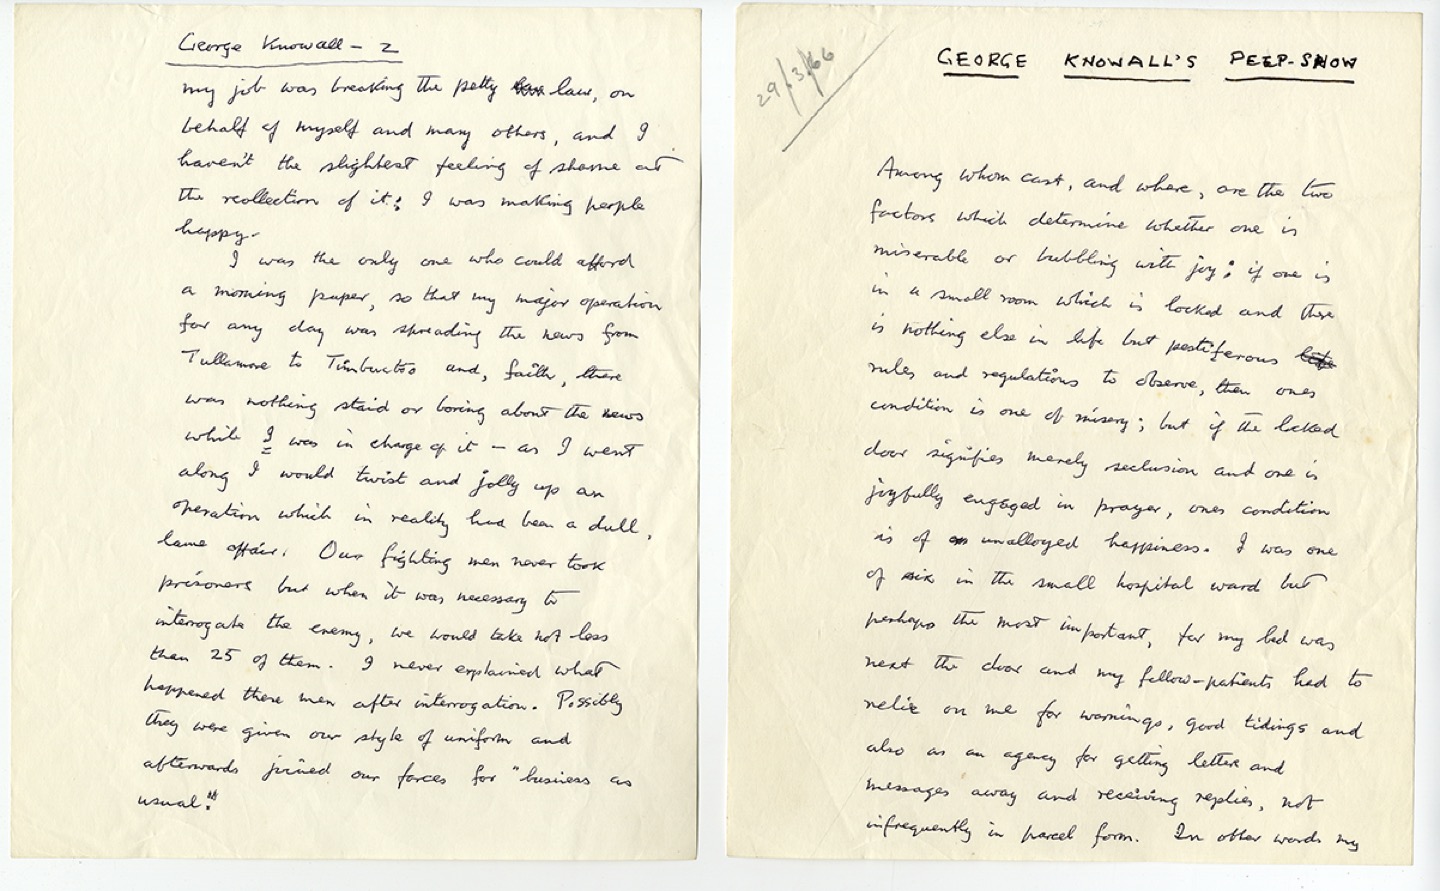 George Knowall – 2
my job was breaking the petty law, on
behalf of myself and many others, and I
haven't the slightest feeling of shame at
the recollection of it; I was making people
happy.
I was the only one who could afford
a morning paper, so that my major operation
for any day was spreading the news from
Tullamore to Timbuctoo and, faith, there
was nothing staid or boring about the news
while I was in charge of it – as I went
along I would twist and jolly up an
operation which in reality had been a dull,
lame affair. Our fighting men never took
prisoners but when it was necessary to
interrogate the enemy, we would take not less
than 25 of them. I never explained what
happened these men after interrogation. Possibly
they were given our style of uniform and
afterwards joined our forces for "business as
usual."
29/3/66
GEORGE KNOWALL'S PEEP-SHOW
Among whom cast, and where, are the two
factors which determine whether one is
miserable or bubbling with joy; if one is
in a small room which is locked and there
is nothing else in life but pestiferous
rules and regulations to observe, then ones
condition is one of misery; but if the locked
door signifies merely seclusion and one is
joyfully engaged in prayer, ones condition
is of unalloyed happiness. I was one
of six in the small hospital ward but
perhaps the most important, for my bed was
next the door and my fellow-patients had to
relie on me for warnings, good tidings and
also as an agency for getting letters and
messages away and receiving replies, not
infrequently in parcel form. In other words my